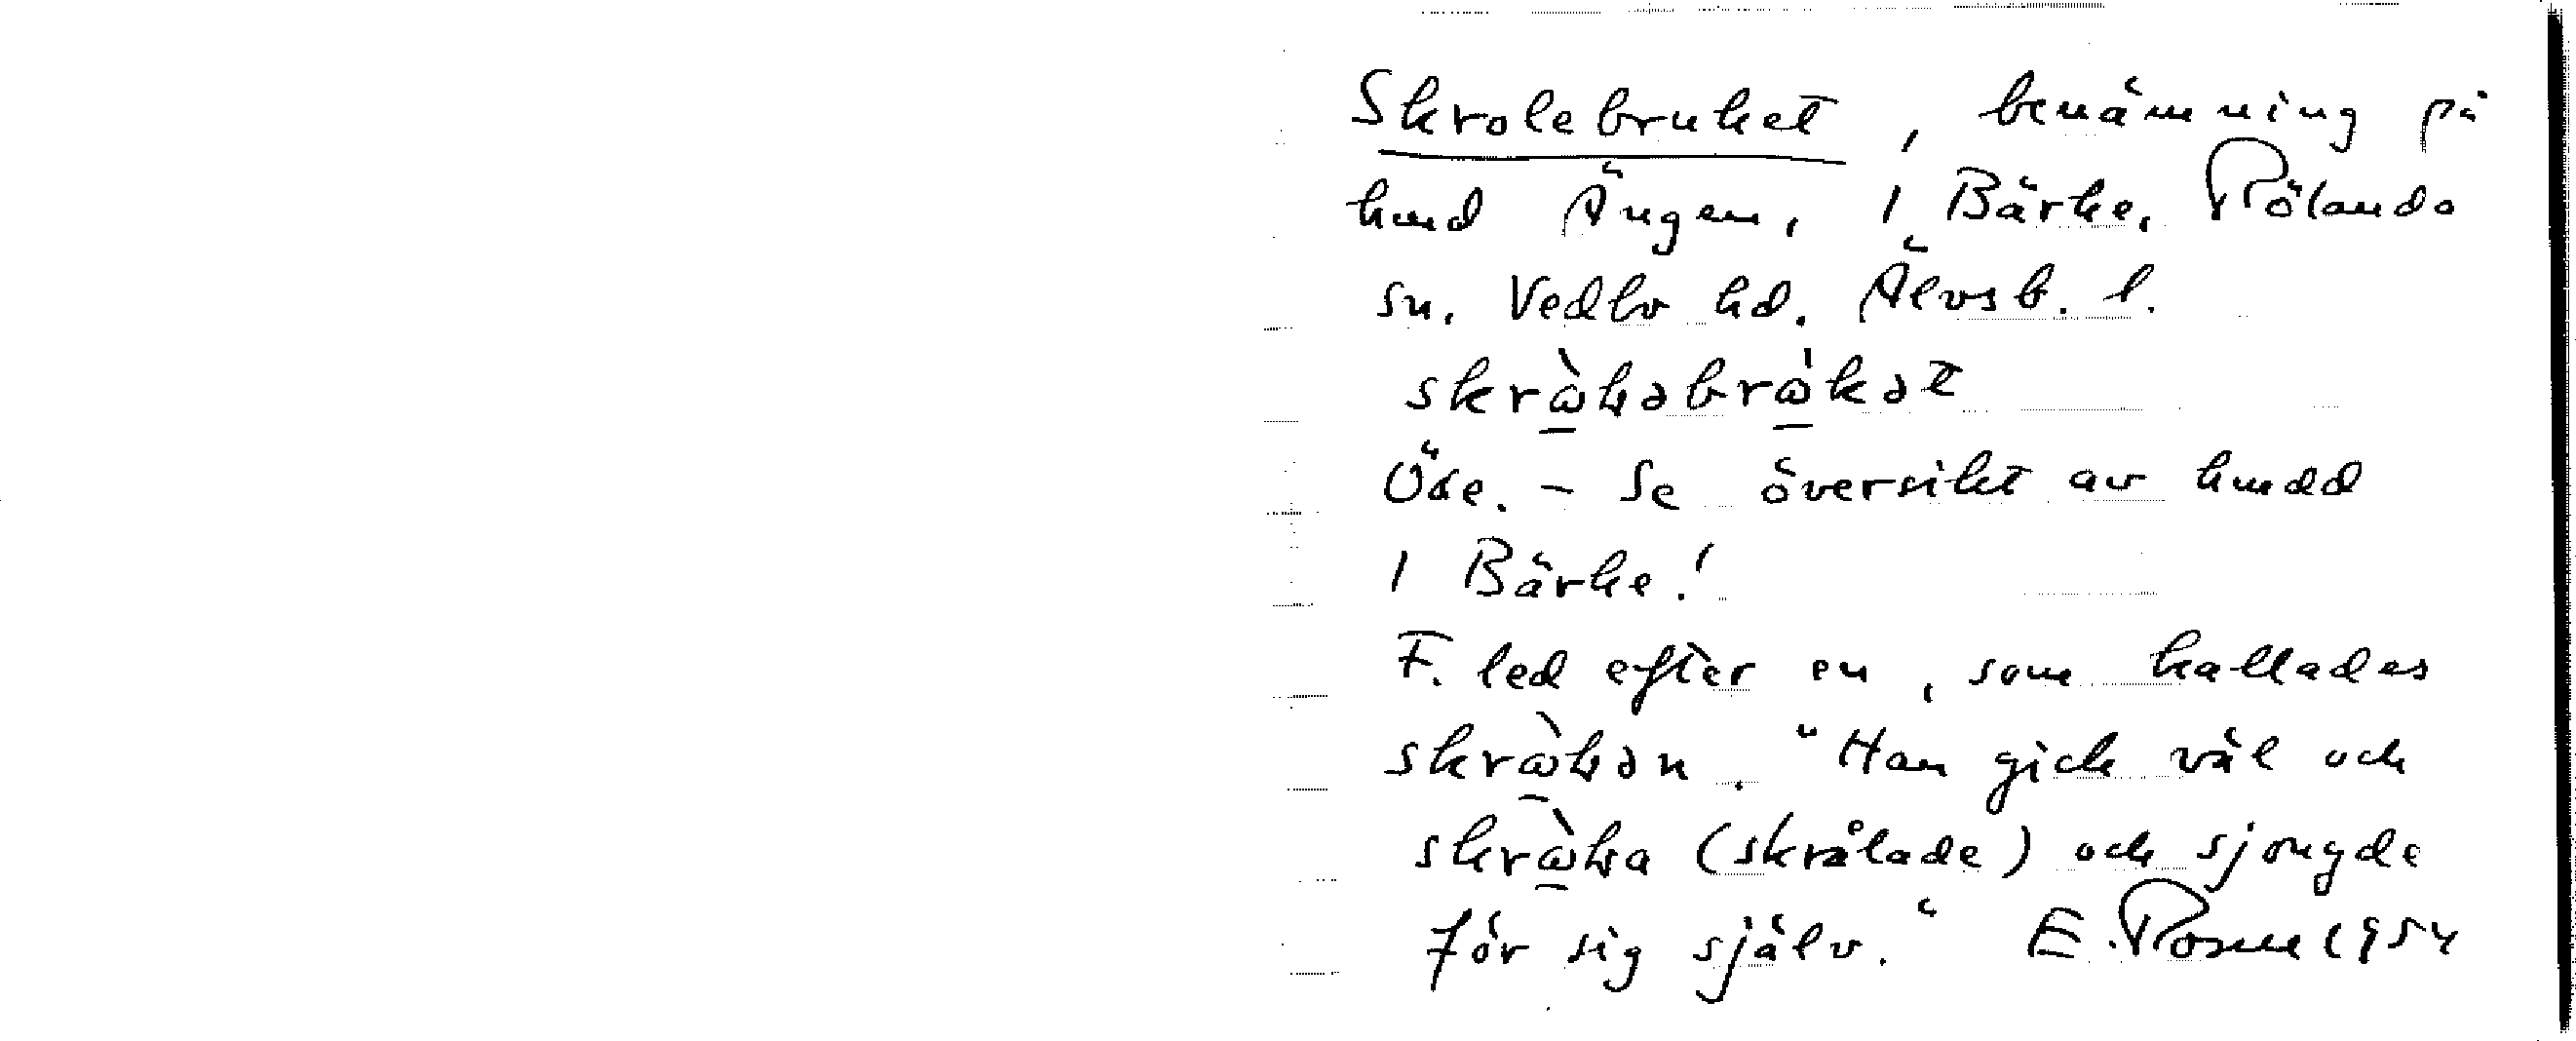 Skrolebruket, benämning på
hmd Ängen, 1 Bärke, Rölanda
sn. Vedbo hd. Älvsb. l.
skrὼłəbrὼkət
Öde. - Se översikt av hmdd
1 Bärke!
F. led efter en, som kallades
skrὼłən. "Han gick väl och
skrὼła (skrålade) och sjongde
för sig själv." E. Rosell 1954